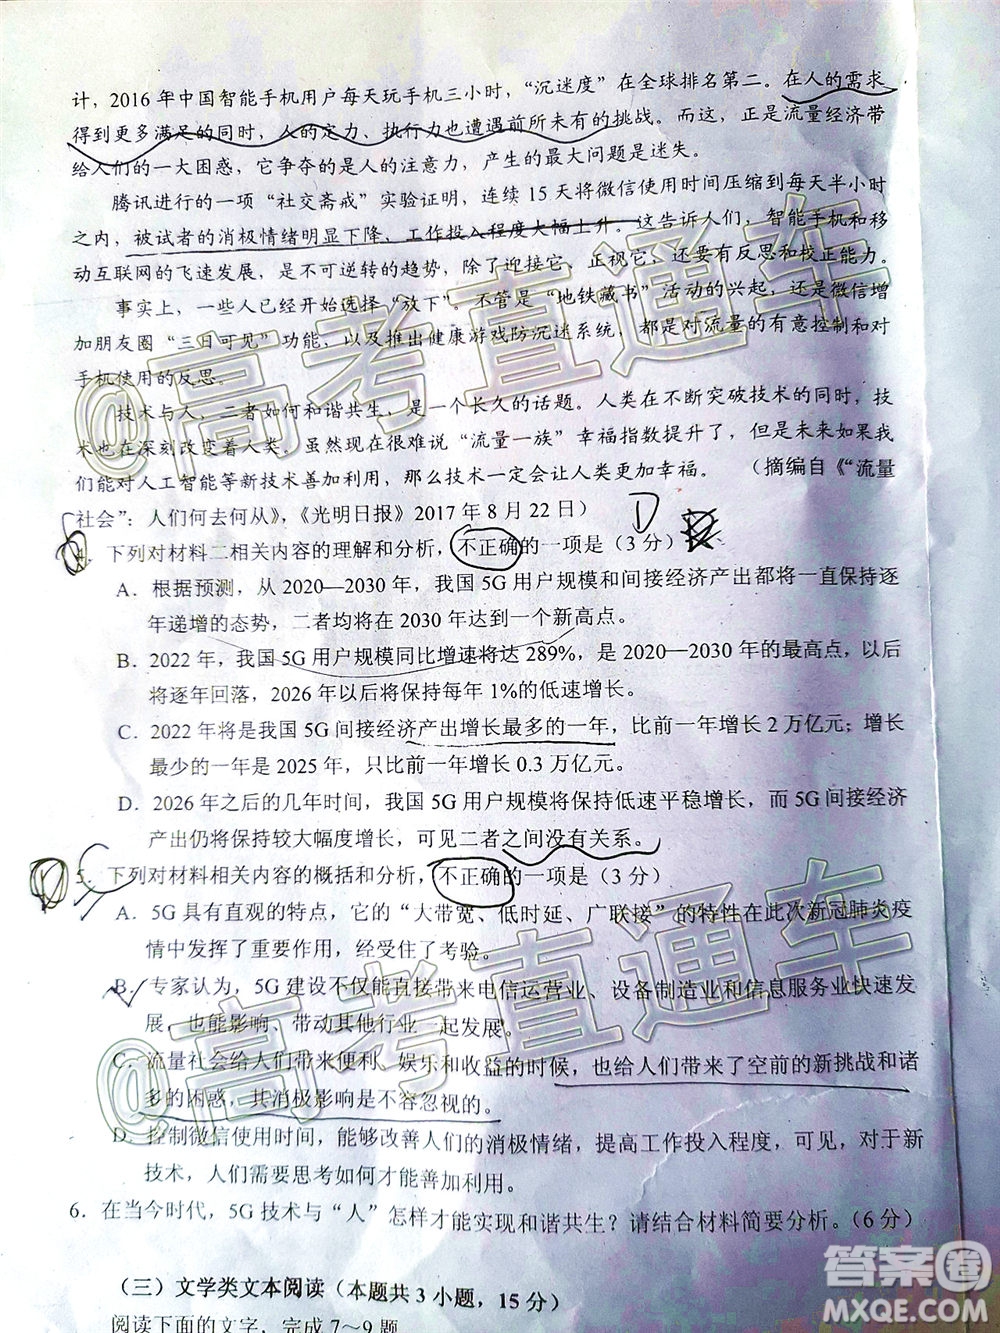 计，2016年中国智能手机用户每天玩手机三小时，“沉迷度”在全球排名第二。在人的需求
得到更多满足的同时，人的定力、执行力也遭遇前所未有的挑战。而这，正是流量经济带
给人们的一大困惑，它争夺的是人的注意力，产生的最大问题是迷失。
腾讯进行的一项“社交斋戒”实验证明，连续15天将微信使用时间压缩到每天半小时
之内，被试者的消极情绪明显下降，工作投入程度大幅上升。这告诉人们，智能手机和移
动互联网的飞速发展，是不可逆转的趋势，除了迎接它，正视它，还要有反思和校正能力。
事实上，一些人已经开始选择“放下”。不管是“地铁藏书”活动的兴起，还是微信增
加朋友圈“三日可见”功能，以及推出健康游戏防沉迷系统，都是对流量的有意控制和对
手机使用的反思。
技术与人，二者如何和谐共生，是一个长久的话题。人类在不断突破技术的同时，技
术也在深刻改变着人类。虽然现在很难说“流量一族”幸福指数提升了，但是未来如果我
们能对人工智能等新技术善加利用，那么技术一定会让人类更加幸福。（摘编自《“流量
社会”：人们何去何从》，《光明日报》2017年8月22日）
D
4．下列对材料二相关内容的理解和分析，不正确的一项是（3分）
A．根据预测，从2020—2030年，我国5G用户规模和间接经济产出都将一直保持逐
年递增的态势，二者均将在2030年达到一个新高点。
B．2022年，我国5G用户规模同比增速将达289%，是2020—2030年的最高点，以后
将逐年回落，2026年以后将保持每年1%的低速增长。
C．2022年将是我国5G间接经济产出增长最多的一年，比前一年增长2万亿元；增长
最少的一年是2025年，只比前一年增长0.3万亿元。
D．2026年之后的几年时间，我国5G用户规模将保持低速平稳增长，而5G间接经济
产出仍将保持较大幅度增长，可见二者之间没有关系。
5．下列对材料相关内容的概括和分析，不正确的一项是（3分）
A．5G具有直观的特点，它的“大带宽、低时延、广联接”的特性在此次新冠肺炎疫
情中发挥了重要作用，经受住了考验。
B．专家认为，5G建设不仅能直接带来电信运营业、设备制造业和信息服务业快速发
展，也能影响、带动其他行业一起发展。
C．流量社会给人们带来便利、娱乐和收益的时候，也给人们带来了空前的新挑战和诸
多的困惑，其消极影响是不容忽视的。
D．控制微信使用时间，能够改善人们的消极情绪，提高工作投入程度，可见，对于新
技术，人们需要思考如何才能善加利用。
6．在当今时代，5G技术与“人”怎样才能实现和谐共生？请结合材料简要分析。（6分）
（三）文学类文本阅读（本题共3小题，15分）
阅读下面的文字，完成7～9题
@高考直通车
@高考直通车
答案圈
MXQE.COM